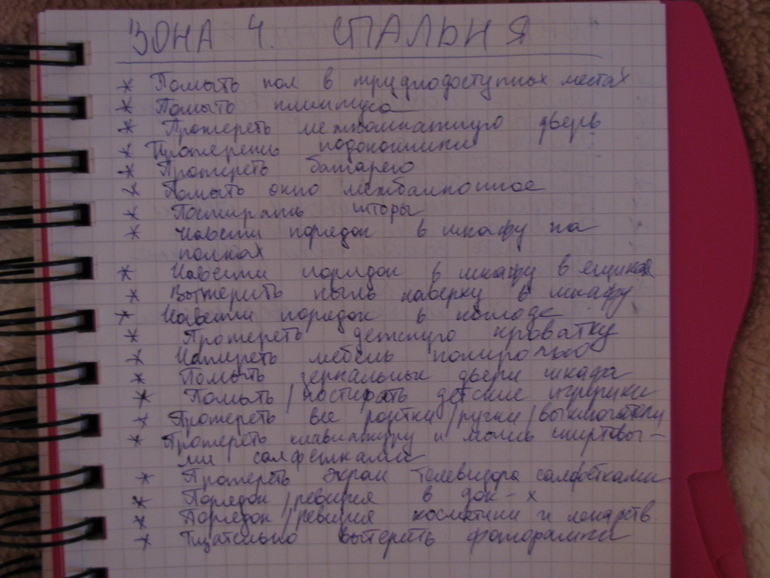 ЗОНА 4. СПАЛЬНЯ
* Помыть пол в труднодоступных местах
* Помыть плинтуса
* Протереть межкомнатную дверь
* Протереть подоконники
* Протереть батарею
* Помыть окно межбалконное
* Постирать шторы
* Навести порядок в шкафу на
полках
* Навести порядок в шкафу в ящиках
* Вытереть пыль наверху в шкафу
* Навести порядок в комоде
* Протереть детскую кроватку
* Натереть мебель полиролью
* Помыть зеркальные двери шкафа
* Помыть/постирать детские игрушки
* Протереть все розетки/ручки/выключатели
* Протереть клавиатуру и мышь спиртовы-
ми салфетками
* Протереть экран телевизора салфетками
* Порядок/ревизия в док-х
* Порядок/ревизия косметики и лекарств
* Тщательно вытереть фоторамки